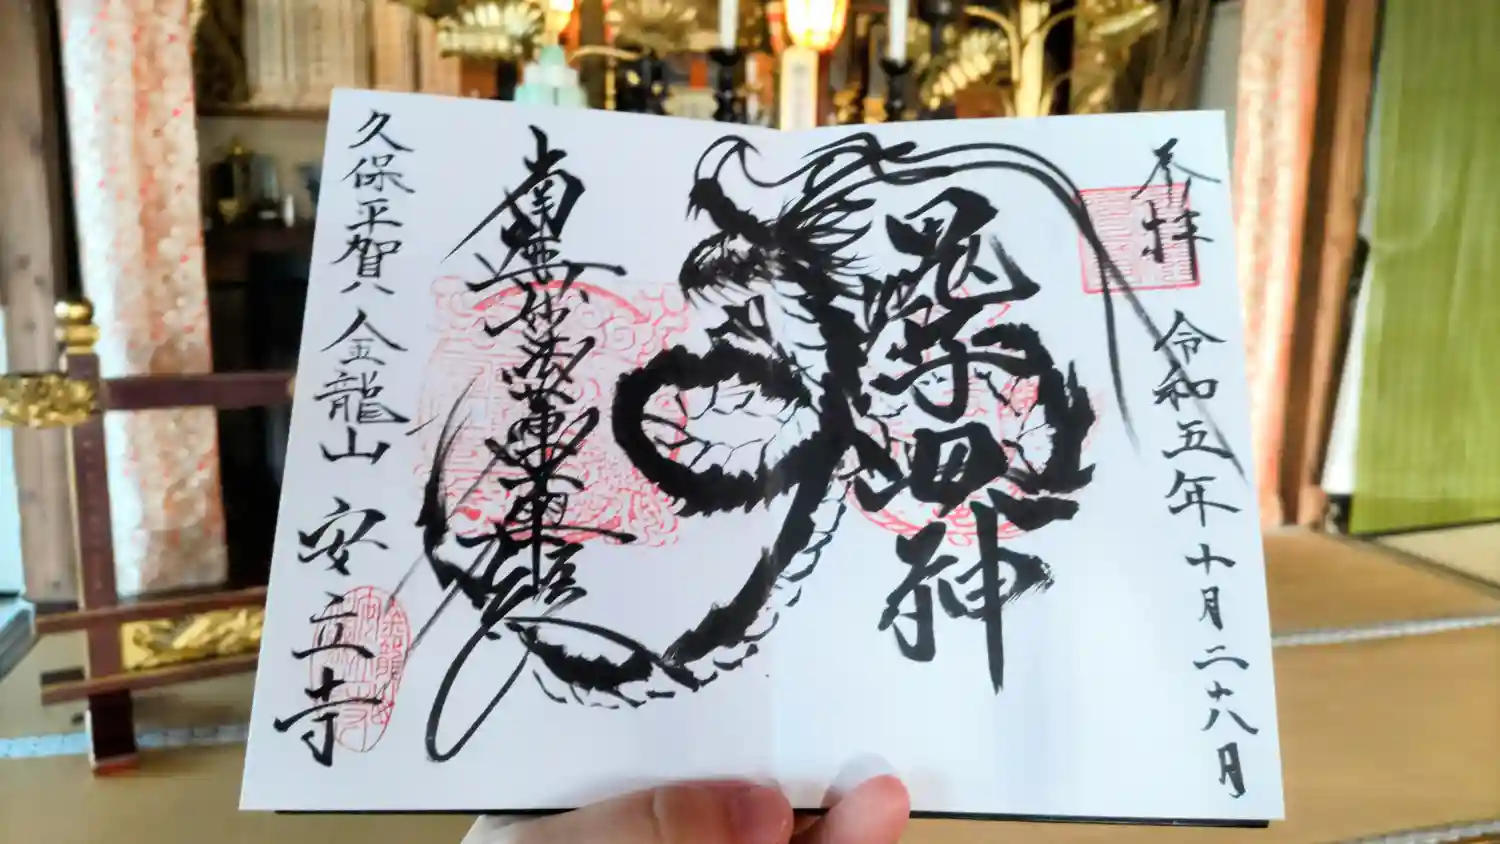 奉拝
令和五年十月二十八日
鬼子母神
南無妙法蓮華経
久保平賀 金龍山 安立寺